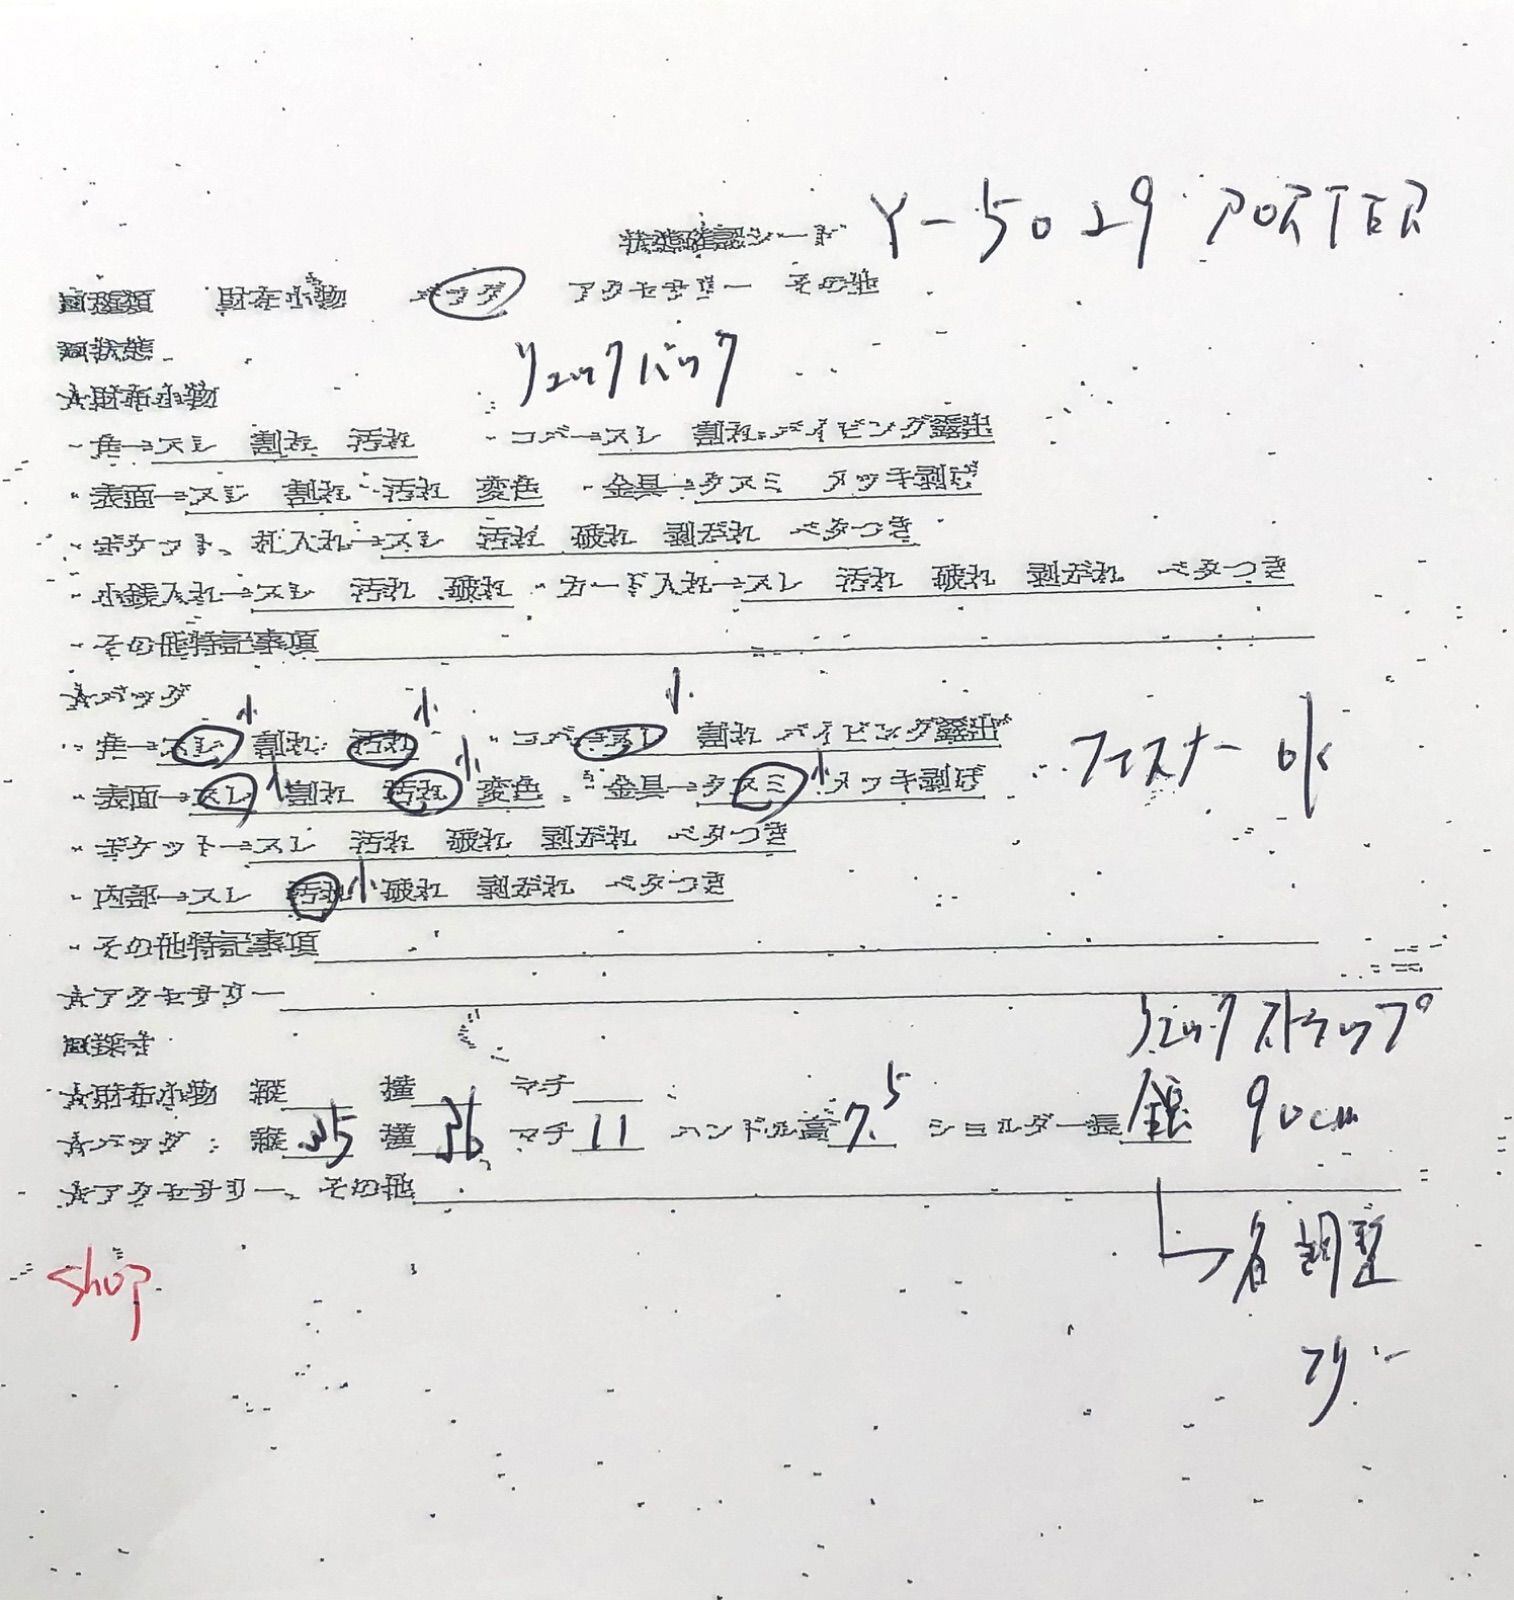 状態確認シート Y-5029 PORTER
■種類 財布小物 バッグ アクセサリー その他
■状態 リュックバック
☆財布小物
・角→スレ 割れ 汚れ ・コバ→スレ 割れ パイピング露出
・表面→スレ 割れ 汚れ 変色 ・金具→クスミ メッキ剥げ
・ポケット、札入れ→スレ 汚れ 破れ 剥がれ ベタつき
・小銭入れ→スレ 汚れ 破れ ・カード入れ→スレ 汚れ 破れ 剥がれ ベタつき
・その他特記事項
☆バッグ
小 小 小
・角→スレ 割れ 汚れ ・コバ→スレ 割れ パイピング露出
・表面→スレ 小 割れ 汚れ 小 変色 ・金具→クスミ 小 メッキ剥げ ファスナー ok
・ポケット→スレ 汚れ 破れ 剥がれ ベタつき
・内部→スレ 汚れ 小 破れ 剥がれ ベタつき
・その他特記事項
☆アクセサリー
■採寸 リュックストラップ
☆財布小物 縦 横 マチ
☆バッグ:縦 35 横 36 マチ 11 ハンドル高 7.5 ショルダー長 最長 90cm
☆アクセサリー、その他
↳ 調整
shop